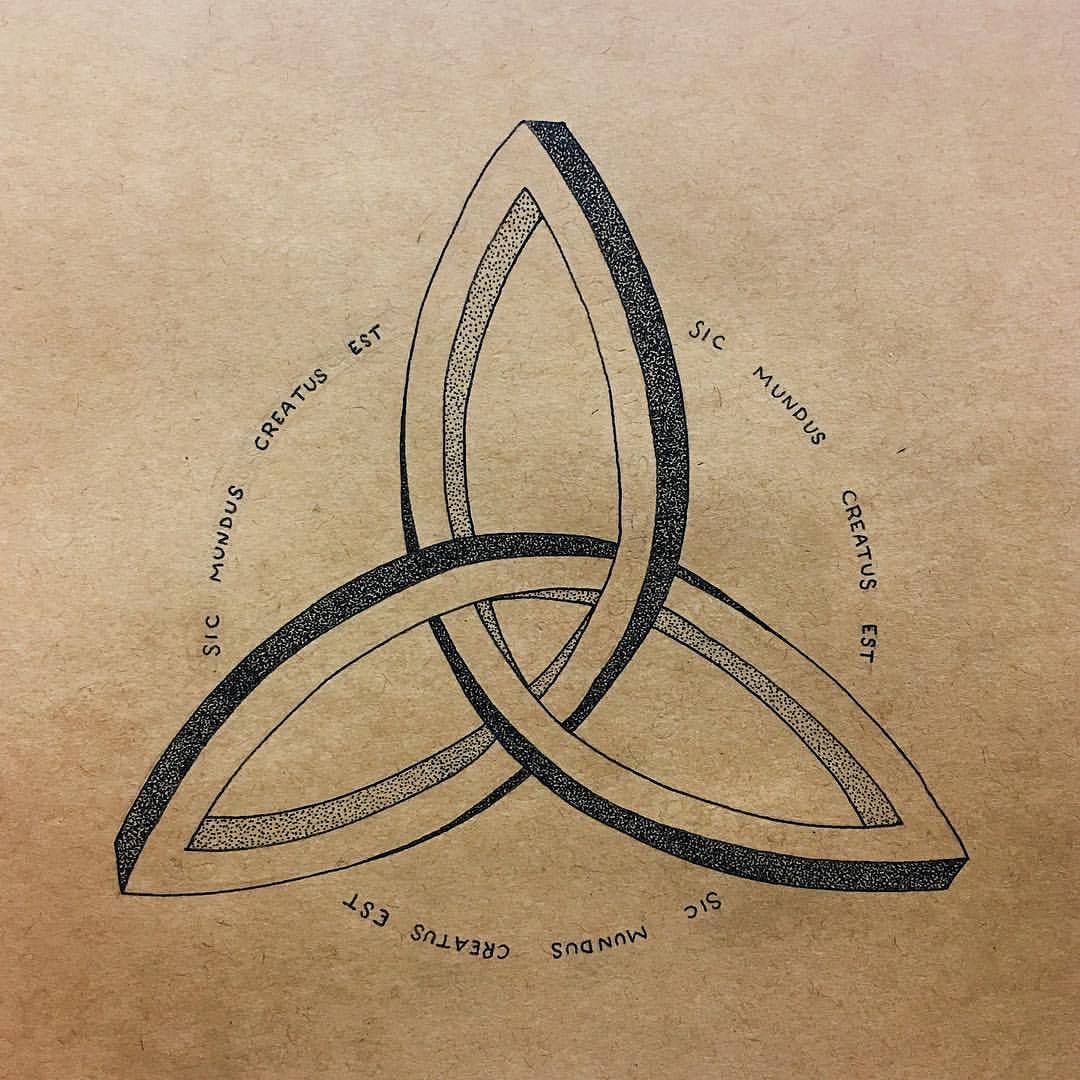 SIC MUNDUS CREATUS EST
SIC MUNDUS CREATUS EST
SIC MUNDUS CREATUS EST